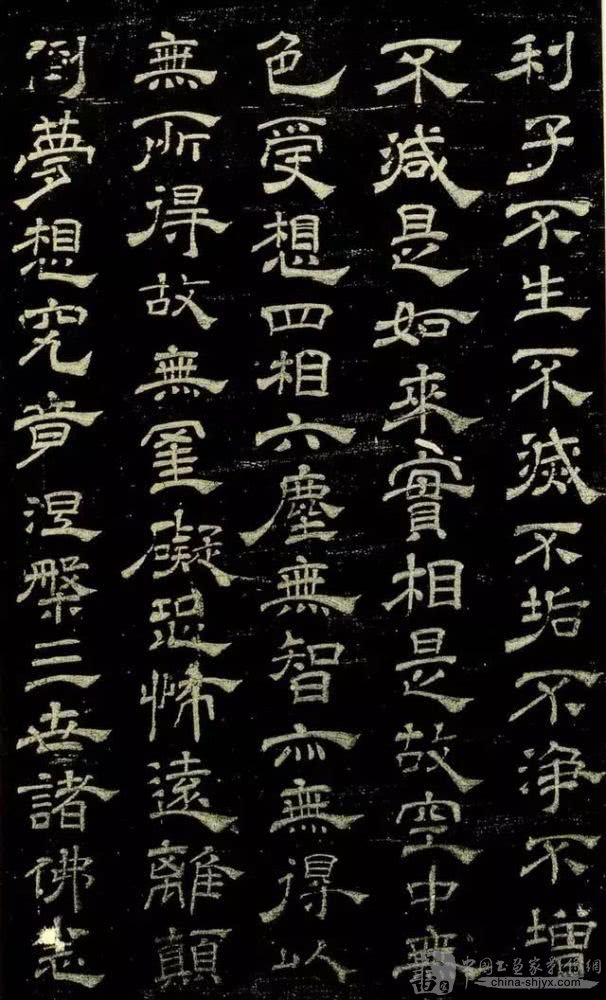 利子不生不滅不垢不淨不增
不減是如來實相是故空中無
色受想四相六塵無智亦無得以
無所得故無罣礙恐怖遠離顛
倒夢想究竟涅槃三世諸佛
china-shjyx.com